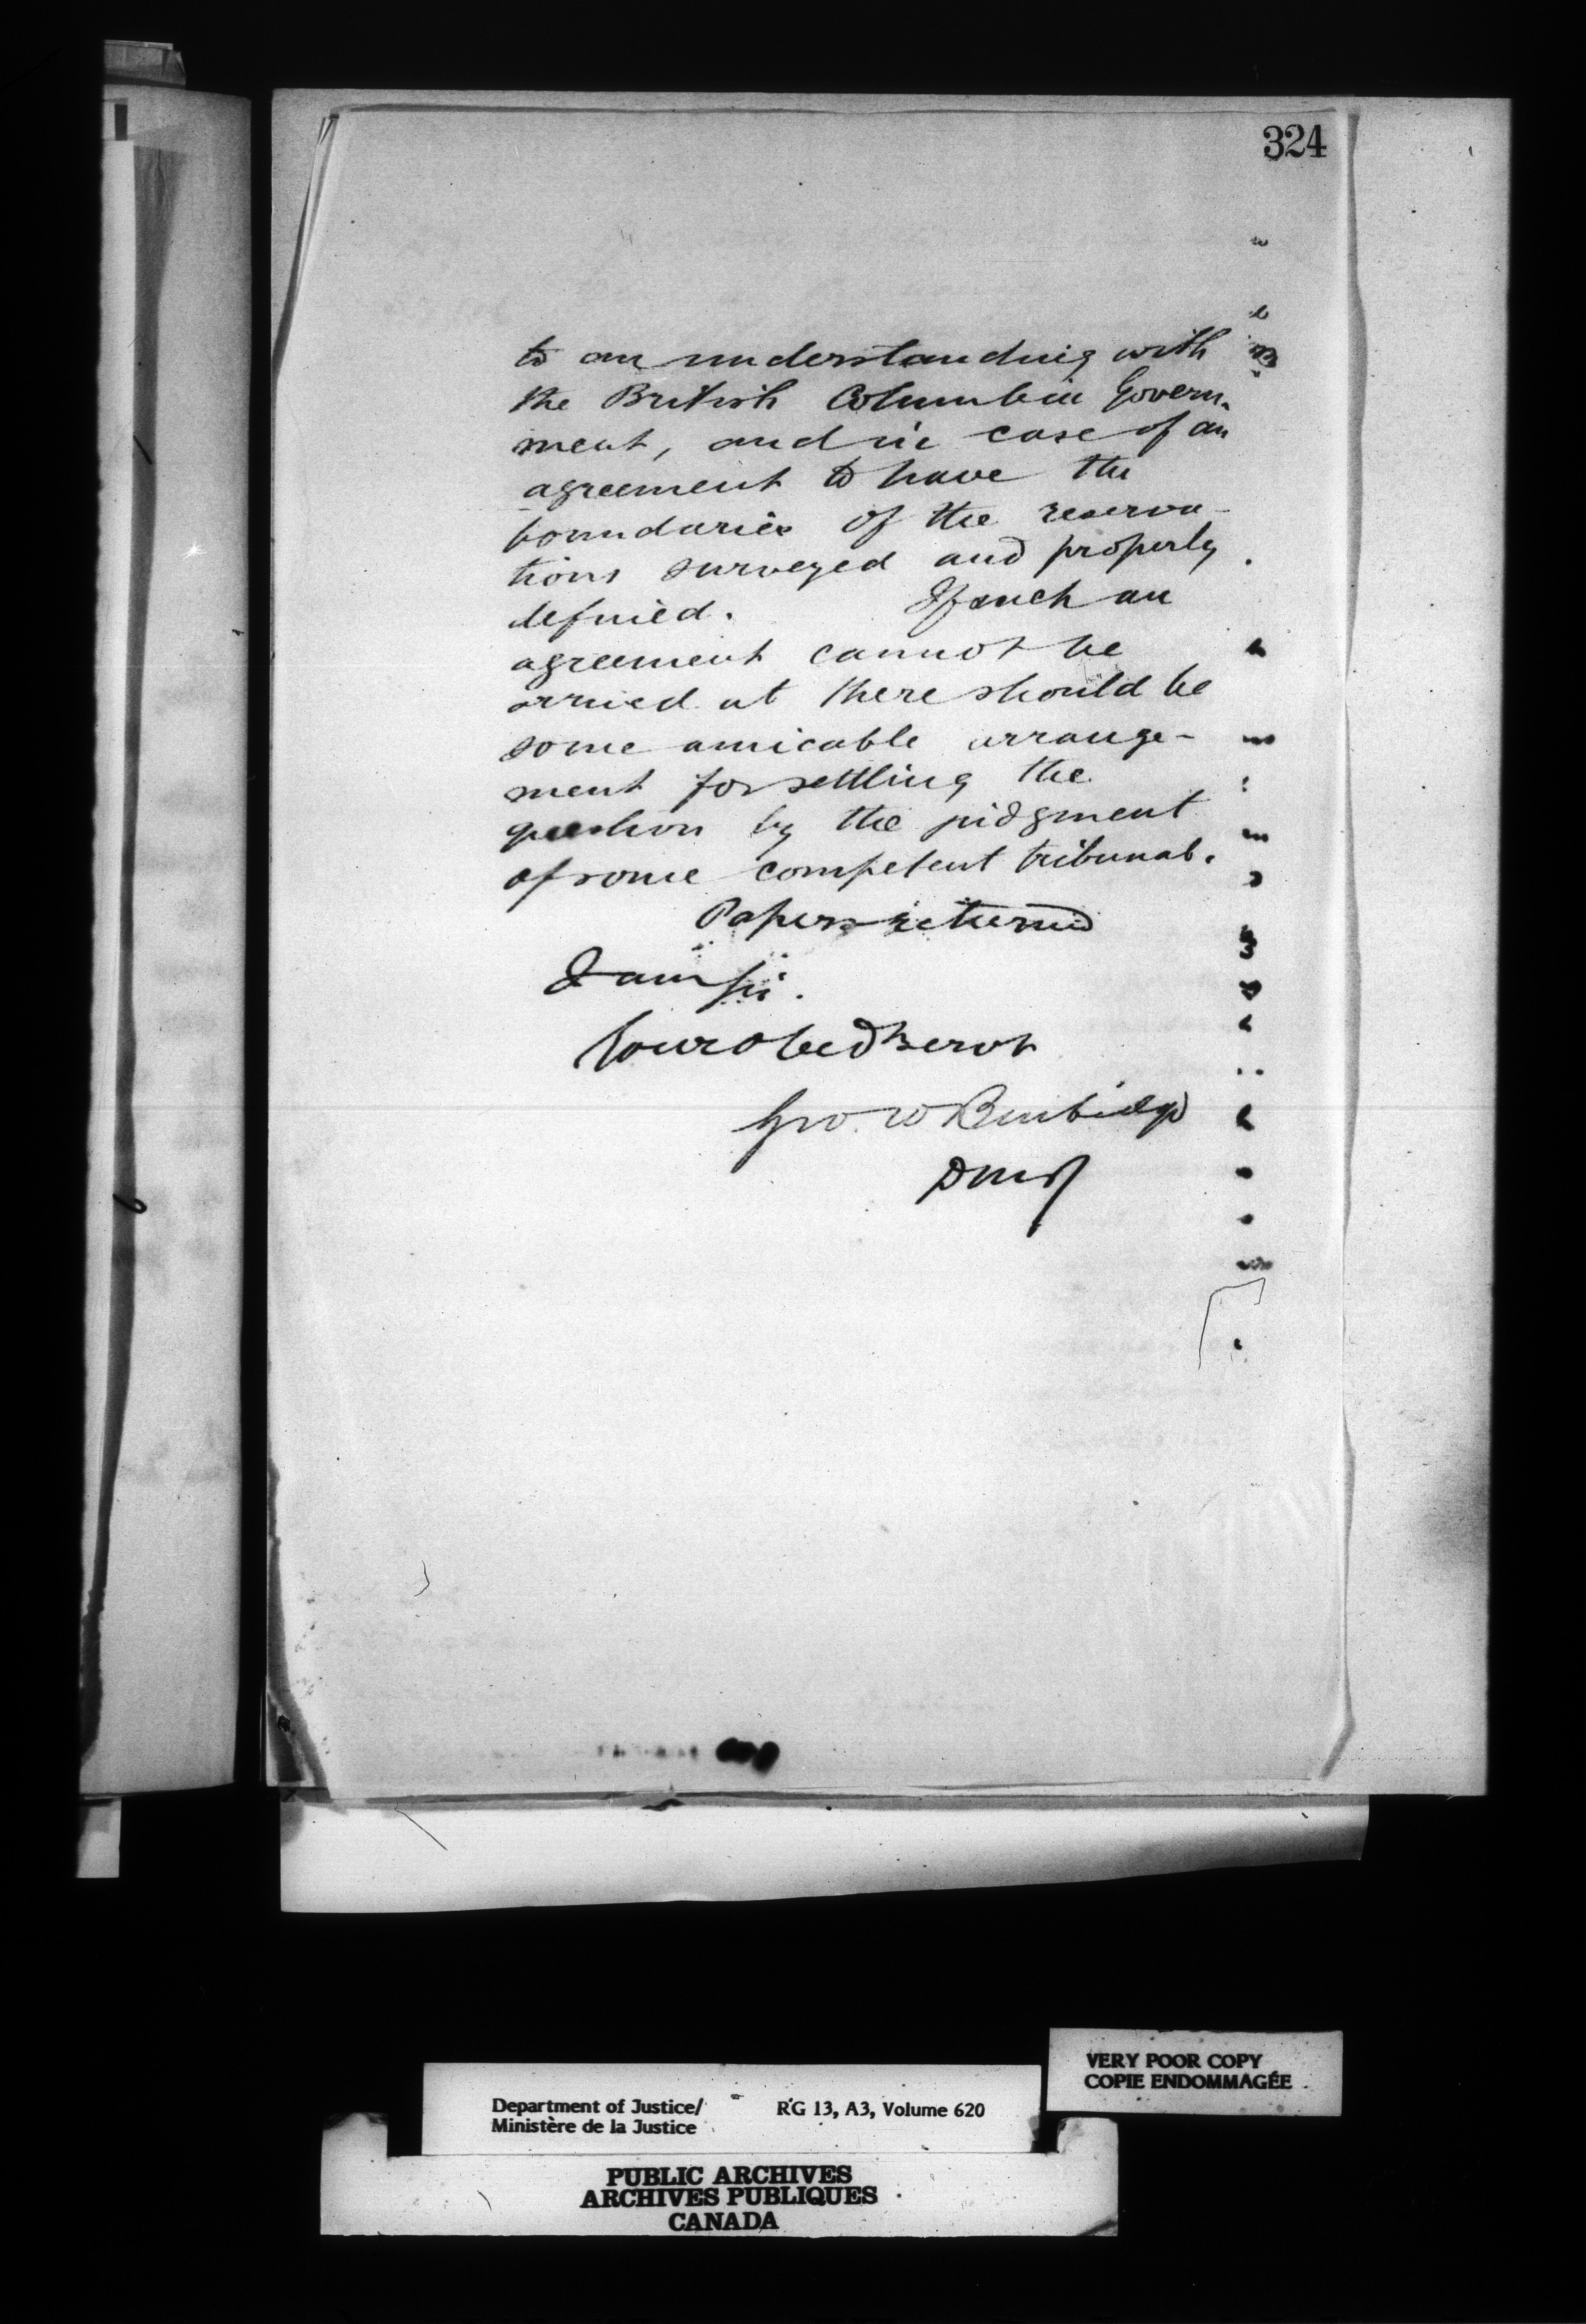 324
to an understanding with
the British Columbia Govern-
ment, and in case of an
agreement to have the
boundaries of the reserva-
tions surveyed and properly
defined. If such an
agreement cannot be
arrived at there should be
some amicable arrange-
ment for settling the
question by the judgment
of some competent tribunal.
Papers returned
I am Sir.
Your obedt servt
Geo. W Burbidge
DMJ
VERY POOR COPY
COPIE ENDOMMAGÉE
Department of Justice/ RG 13, A3, Volume 620
Ministère de la Justice
PUBLIC ARCHIVES
ARCHIVES PUBLIQUES
CANADA